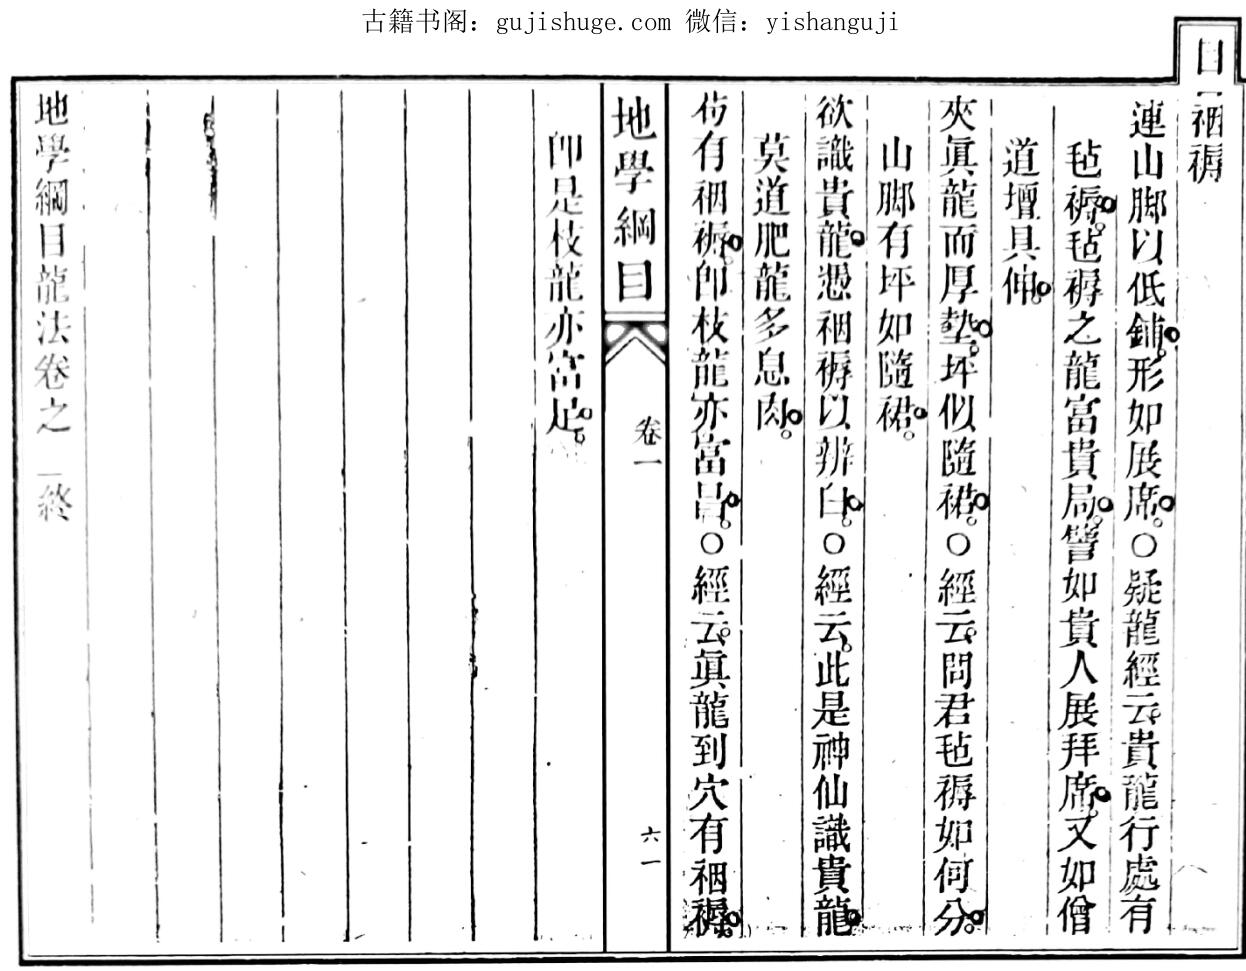 古籍书阁：gujishuge.com 微信：yishanguji
目一
裀褥
連山脚以低鋪。形如展席。○疑龍經云。貴龍行處有
毡褥。毡褥之龍富貴局。譬如貴人展拜席。又如僧
道壇具伸。
夾眞龍而厚墊。坪似隨裙。○經云。問君毡褥如何分。
山脚有坪如隨裙。
欲識貴龍。憑裀褥以辨白。○經云。此是神仙識貴龍
莫道肥龍多息肉。
苟有裀褥。卽枝龍亦富昌。○經云。眞龍到穴有裀褥。
卽是枝龍亦富足。
地學綱目
卷一
六一
地學綱目龍法卷之一終